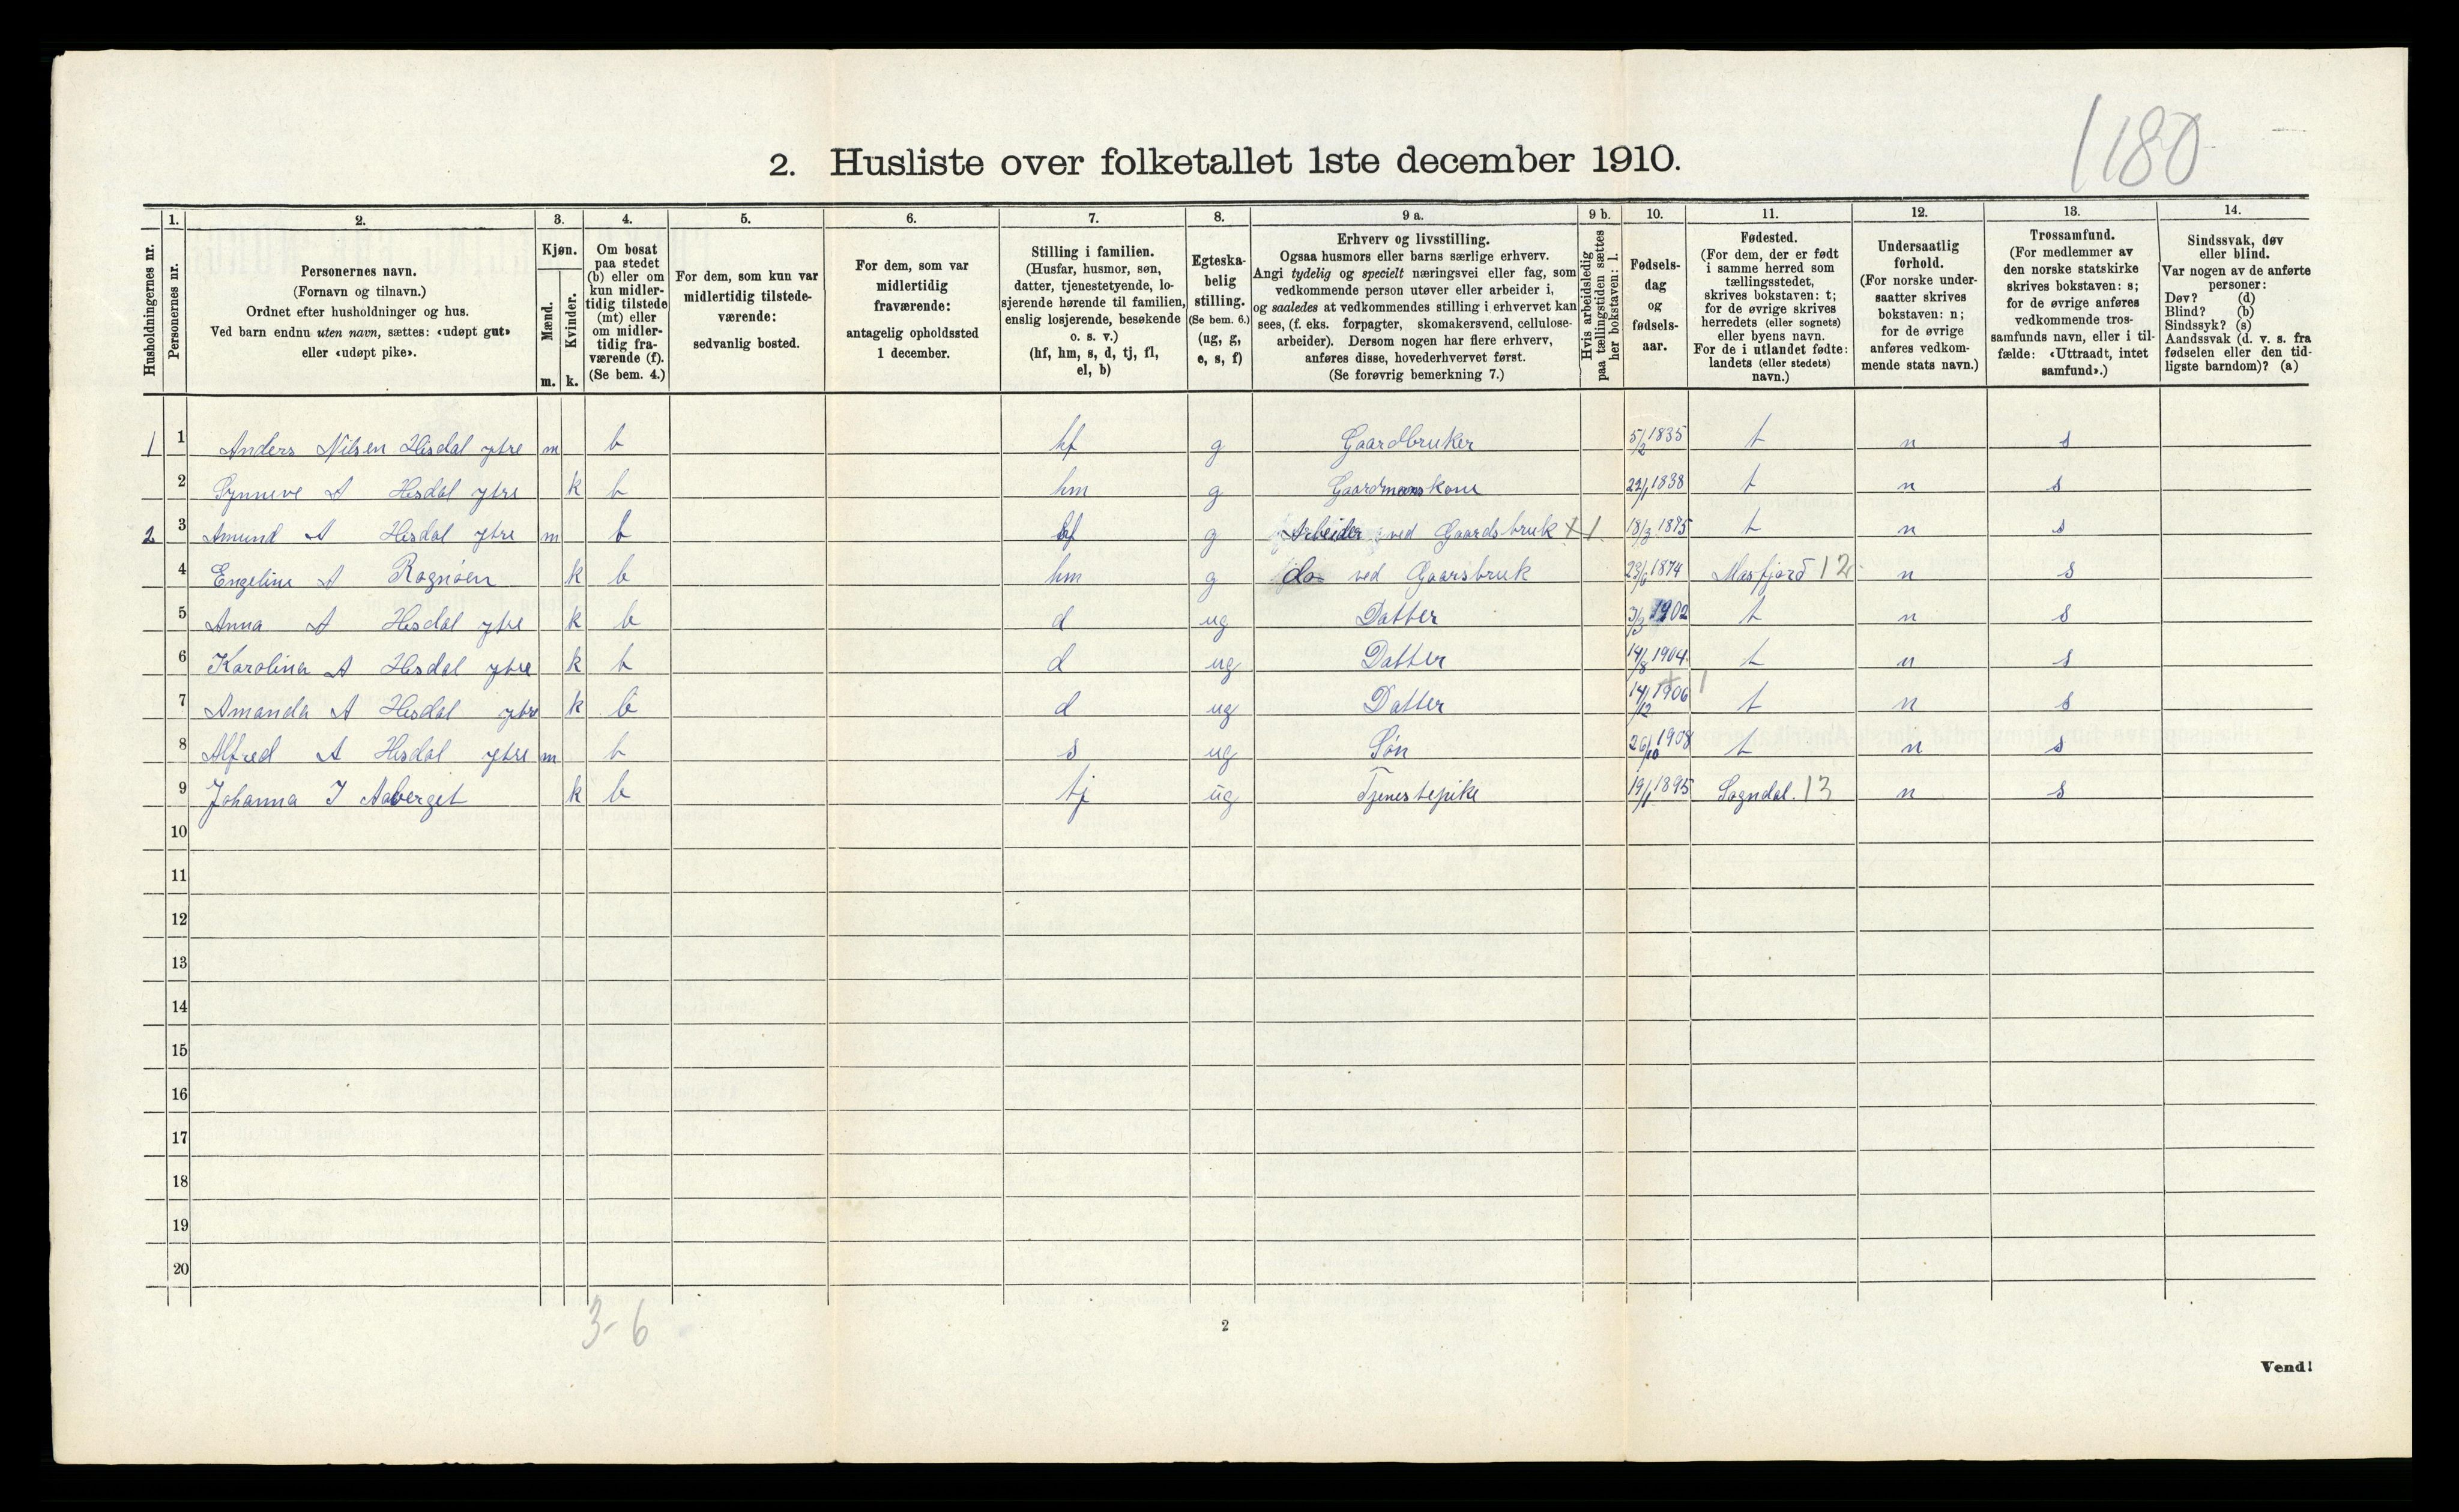 1180
2. Husliste over folketallet 1ste december 1910.
1. 2. 3. 4. 5. 6. 7. 8. 9 a. 9 b. 10. 11. 12. 13. 14.
Husholdningernes nr.
Personernes nr.
Personernes navn.
(Fornavn og tilnavn.)
Ordnet efter husholdninger og hus.
Ved barn endnu uten navn, sættes: «udøpt gut»
eller «udøpt pike».
Kjøn.
Mænd.
Kvinder.
m. k.
Om bosat
paa stedet
(b) eller om
kun midler-
tidig tilstede
(mt) eller
om midler-
tidig fra-
værende (f).
(Se bem. 4.)
For dem, som kun var
midlertidig tilstede-
værende:
sedvanlig bosted.
For dem, som var
midlertidig
fraværende:
antagelig opholdssted
1 december.
Stilling i familien.
(Husfar, husmor, søn,
datter, tjenestetyende, lo-
sjerende hørende til familien,
enslig losjerende, besøkende
o. s. v.)
(hf, hm, s, d, tj, fl,
el, b)
Egteska-
belig
stilling.
(Se bem. 6.)
(ug, g,
e, s, f)
Erhverv og livsstilling.
Ogsaa husmors eller barns særlige erhverv.
Angi tydelig og specielt næringsvei eller fag, som
vedkommende person utøver eller arbeider i,
og saaledes at vedkommendes stilling i erhvervet kan
sees, (f. eks. forpagter, skomakersvend, cellulose-
arbeider). Dersom nogen har flere erhverv,
anføres disse, hovederhvervet først.
(Se forøvrig bemerkning 7.)
Hvis arbeidsledig
paa tællingstiden sættes
her bokstaven: l.
Fødsels-
dag
og
fødsels-
aar.
Fødested.
(For dem, der er født
i samme herred som
tællingsstedet,
skrives bokstaven: t;
for de øvrige skrives
herredets (eller sognets)
eller byens navn.
For de i utlandet fødte:
landets (eller stedets)
navn.)
Undersaatlig
forhold.
(For norske under-
saatter skrives
bokstaven: n;
for de øvrige
anføres vedkom-
mende stats navn.)
Trossamfund.
(For medlemmer av
den norske statskirke
skrives bokstaven: s;
for de øvrige anføres
vedkommende tros-
samfunds navn, eller i til-
fælde: «Uttraadt, intet
samfund».)
Sindssvak, døv
eller blind.
Var nogen av de anførte
personer:
Døv? (d)
Blind? (b)
Sindssyk? (s)
Aandssvak (d. v. s. fra
fødselen eller den tid-
ligste barndom)? (a)
1 1 Anders Nilsen Hisdal ytre m b hf g Gaardbruker 5/2 1835 t n s
2 Synneve A Hisdal ytre k b hm g Gaardmanskone 22/1 1838 t n s
2 3 Amund A Hisdal ytre m b hf g Arbeider ved Gaardsbruk X 1 18/3 1875 t n s
4 Engeline A Rognöen k b hm g do ved Gaarsbruk 23/6 1874 Masfjord 12 n s
5 Anna A Hisdal ytre k b d ug Datter 3/3 1902 t n s
6 Karolina A Hisdal ytre k b d ug Datter 14/8 1904 t n s
7 Amanda A Hisdal ytre k b d ug Datter 14/12 1906 1 t n s
8 Alfred A Hisdal ytre m b s ug Søn 26/10 1908 t n s
9 Johanna I Aaberget k b tj ug Tjenestepike 19/1 1895 Sogndal. 13 n s
10
11
12
13
14
15
16
17
18
19
20
3-6
2
Vend!